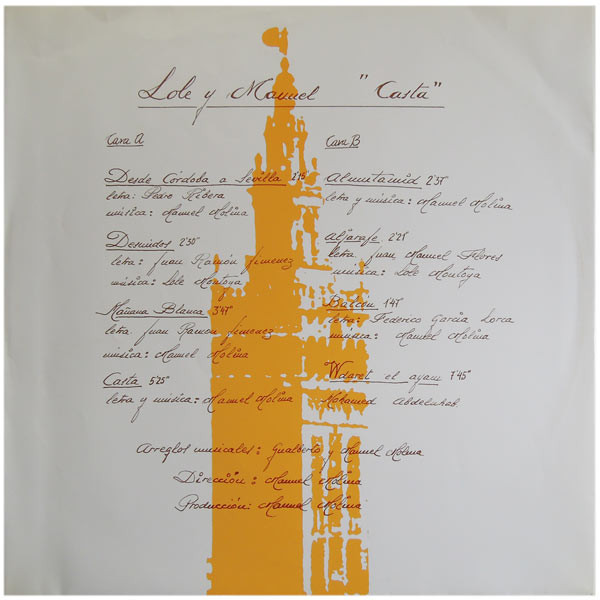 Lole y Manuel "Casta"
Cara A
Desde Córdoba a Sevilla 2'15"
letra: Pedro Ribera
música: Manuel Molina
Desnudos 2'30"
letra: Juan Ramón Jimenez
música: Lole Montoya
Mañana Blanca 3'47"
letra Juan Ramon Jimenez
música: Manuel Molina
Casta 5'25"
letra y música: Manuel Molina
Cara B
Almutamid 2'37"
letra y música: Manuel Molina
Aljarafe 2'21"
letra Juan Manuel Flores
música: Lole Montoya
Balcon 1'41"
letra: Federico García Lorca
musica: Manuel Molina
Wdaret el ayam 7'45"
Mohamed Abdeluhab.
Arreglos musicales: Gualberto y Manuel Molina
Dirección: Manuel Molina
Producción: Manuel Molina